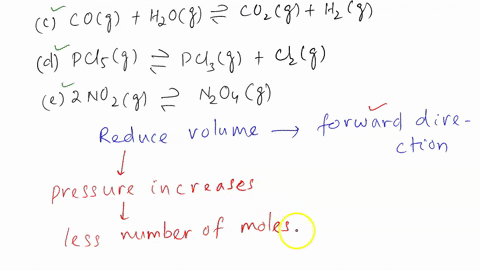 (c) CO(g) + H₂O(g) ⇌ CO₂(g) + H₂(g)
(d) PCl₅(g) ⇌ PCl₃(g) + Cl₂(g)
(e) 2NO₂(g) ⇌ N₂O₄(g)
Reduce volume → forward dire-
ction
↓
pressure increases
↓
less number of moles.